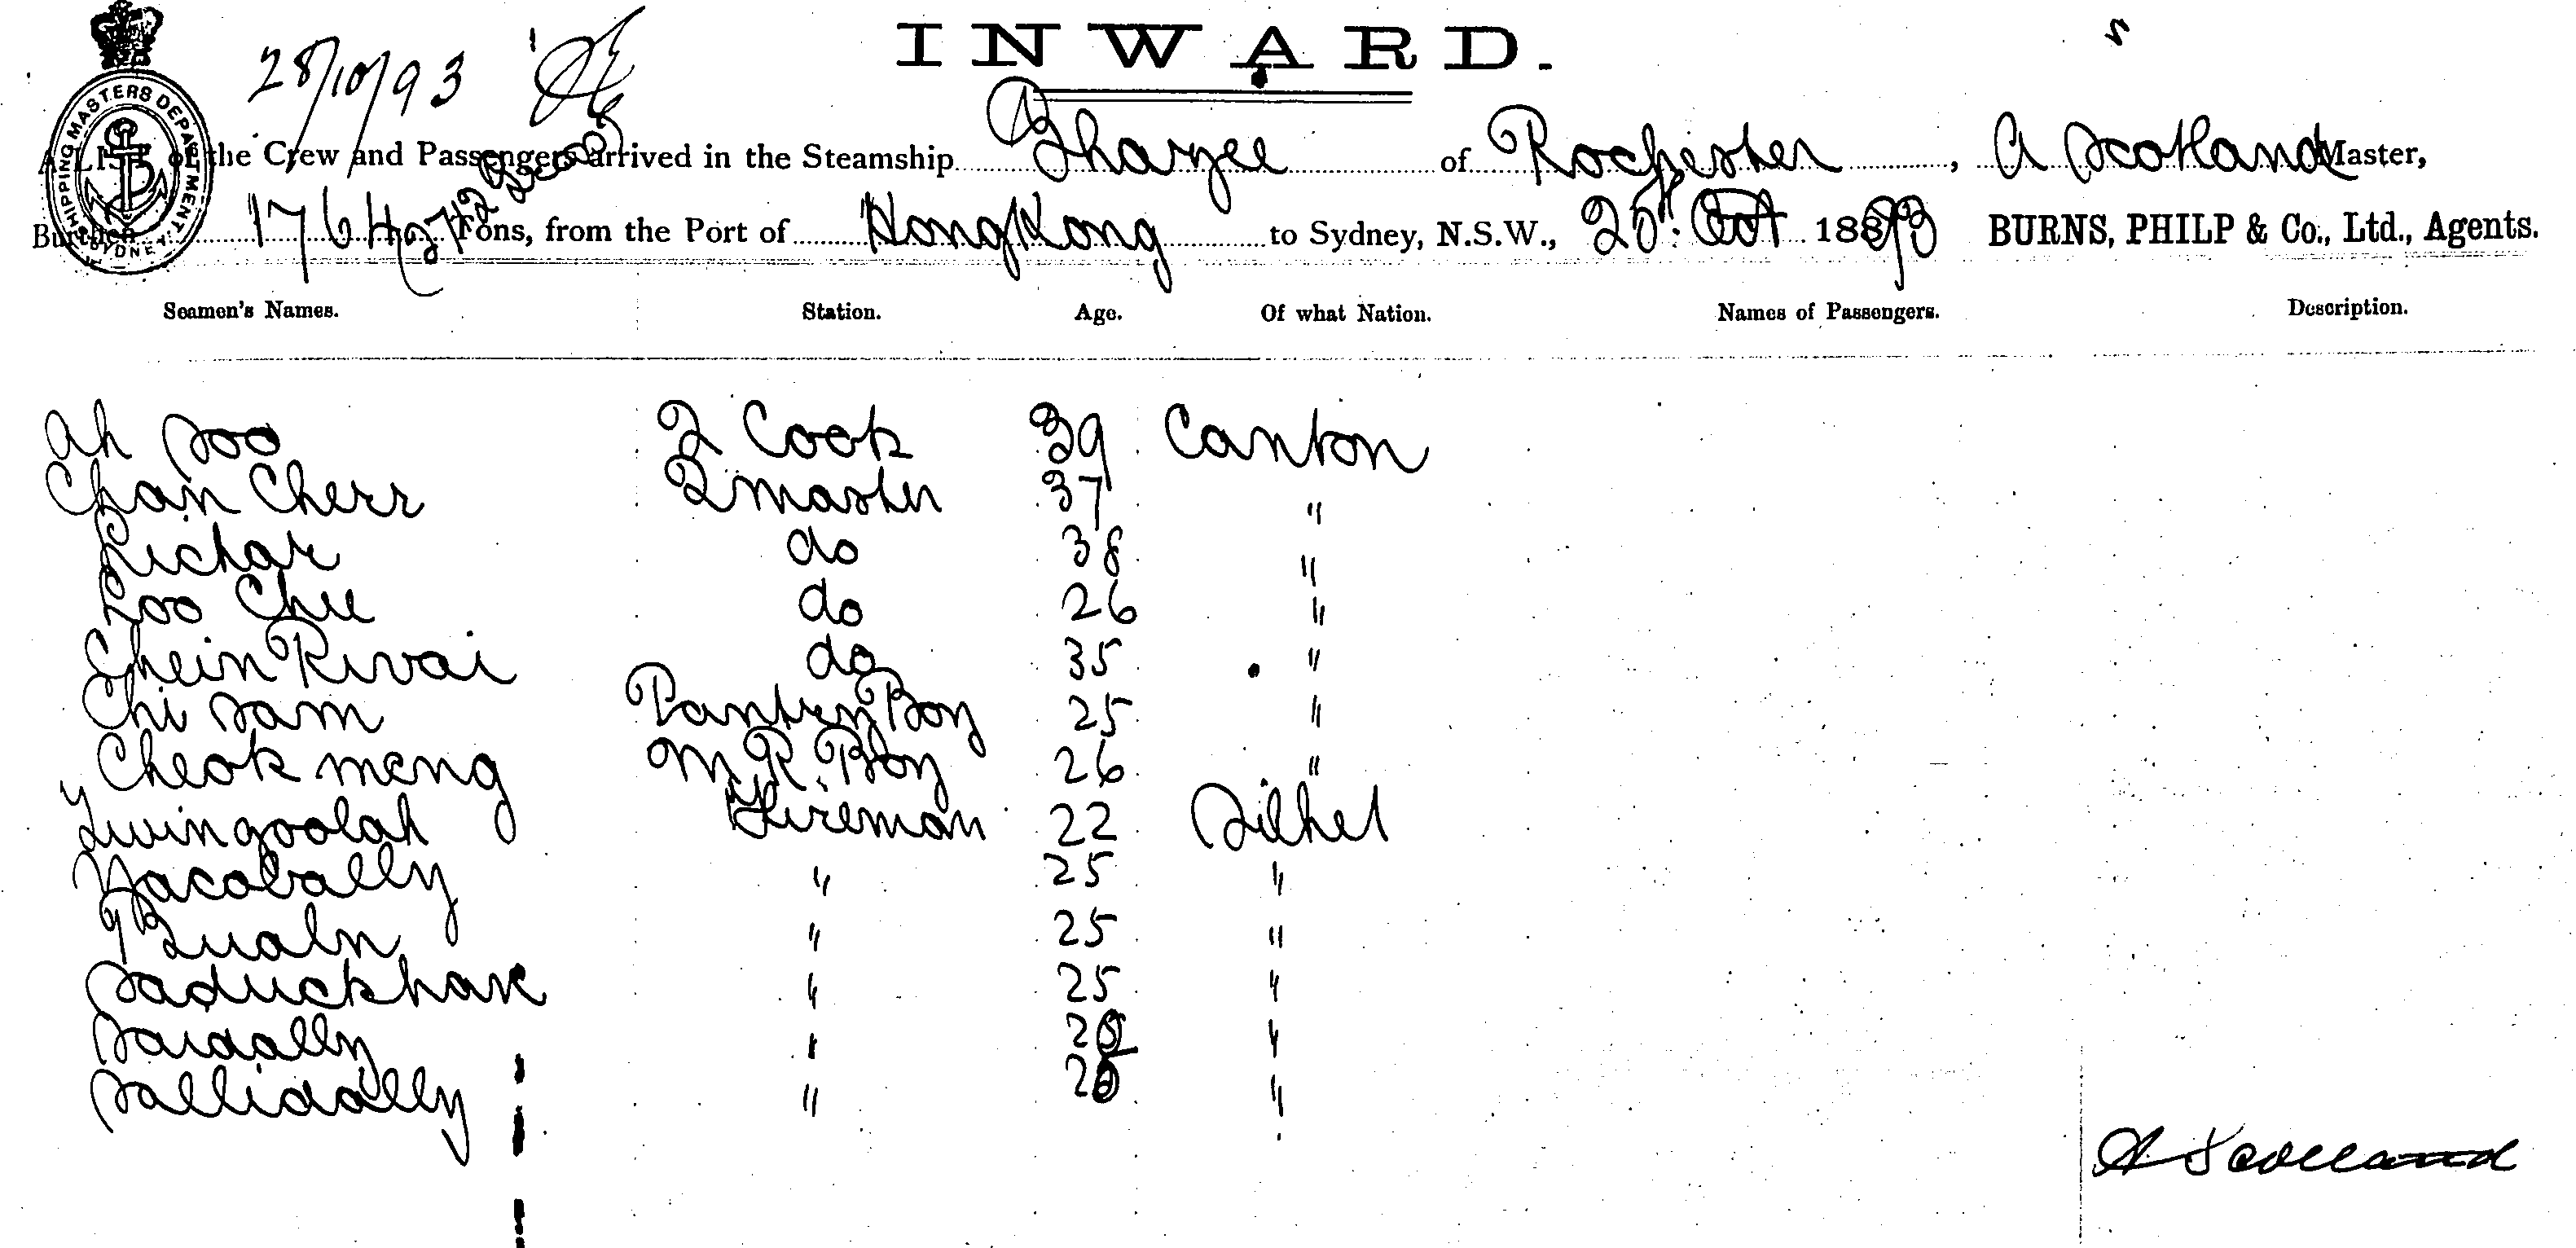 INWARD.
28/10/93
SHIPPING MASTERS DEPARTMENT SYDNEY
A LIST of the Crew and Passengers arrived in the Steamship of Rochester, A Scotland Master,
Burthen 1764 Tons, from the Port of HongKong to Sydney, N.S.W., 25th Oct 1893 BURNS, PHILP & Co., Ltd., Agents.
Seamen's Names. Station. Age. Of what Nation. Names of Passengers. Description.
Ah Soo 2 Cook 39 Canton
Chan Cherr 2master 37 "
Lichar do 38 "
Loo Chu do 26 "
Chein Kivai do 35 "
Chi Sam Pantry Boy 25 "
Cheok meng M.R. Boy 26 "
Fireman 22 Silhet
Yacobally " 25 "
" 25 "
Saduckhan " 25 "
Saidally " "
Sallidally " "
A Scotland